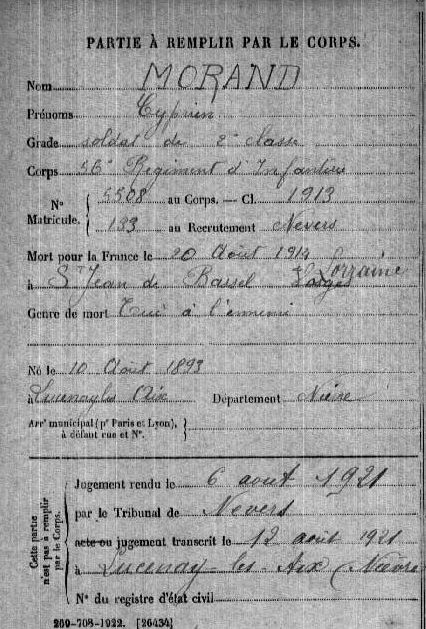 PARTIE À REMPLIR PAR LE CORPS.
Nom MORAND
Prénoms Cyprien
Grade soldat de 2e classe
Corps 56e Régiment d'Infanterie
N° Matricule. { 5508 au Corps. — Cl. 1913
193 au Recrutement Nevers
Mort pour la France le 20 Août 1914
à St Jean de Bassel Vosges Lorraine
Genre de mort Tué à l'ennemi
Né le 10 Août 1893
à Lucenay les Aix Département Nièvre
Arrt municipal (pr Paris et Lyon), }
à défaut rue et N°.
Cette partie n'est pas à remplir par le Corps.
Jugement rendu le 6 août 1921
par le Tribunal de Nevers
acte ou jugement transcrit le 12 août 1921
à Lucenay-les-Aix (Nièvre
N° du registre d'état civil
269-708-1922. [26434]